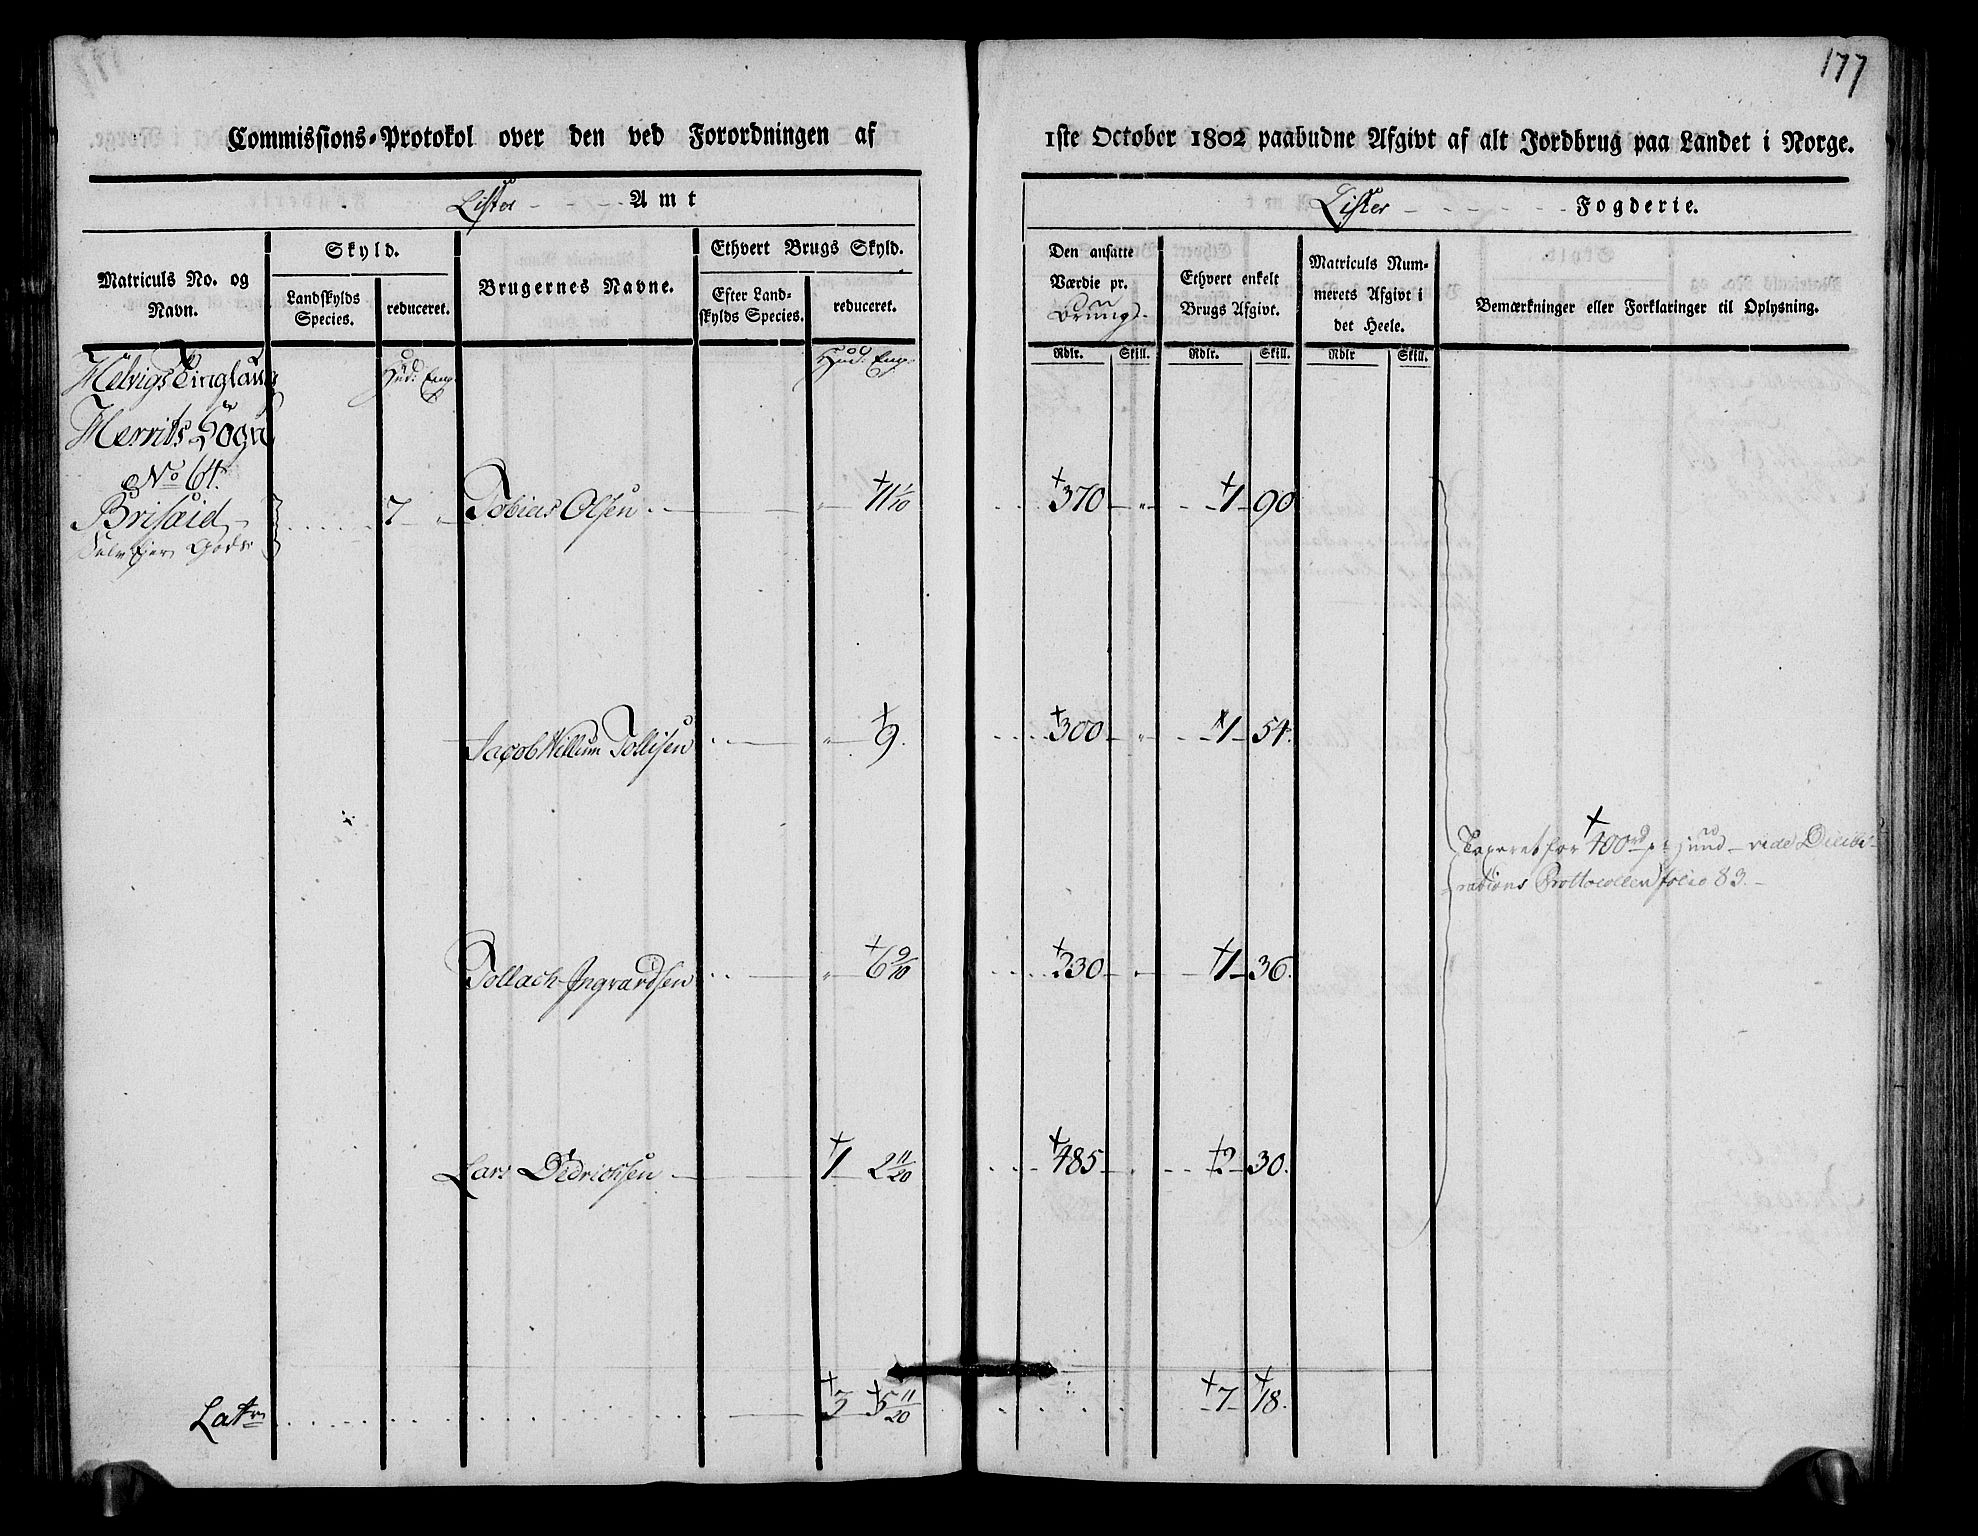 177
Commissions-Protokol over den ved Forordningen af 1ste October 1802 paabudne Afgivt af alt Jordbrug paa Landet i Norge.
Lister - - - Amt
Lister - - - - - Fogderie.
Matriculs No. og Navn.
Skyld.
Landskylds Species.
reduceret.
Brugernes Navne.
Ethvert Brugs Skyld.
Efter Landskylds Species.
reduceret.
Den ansatte Værdie pr.
Ethvert enkelt Brugs Afgivt.
Matriculs Nummerets Afgivt i det Heele.
Bemærkninger eller Forklaringer til Oplysning.
Rdlr. Skill. Rdlr. Skill. Rdlr Skill.
Helvigs Tinglaug Hud: Eng: Hud: Eng:
Herrits Sogn
No 64.
Brisæid 7 Tobias Olsen - - 11 1/10 370 - 1 - 90
Selv Ejer Gods
Jacob Willum Tollisen - 9. 300 - 1 - 54.
Taxeret for 400 rd pr hud - vide Delibe-
rations Prottocollen folio 83. -
Tollach Ingvardsen - 6 9/10 230 - 1 - 36.
Lars Dedrichsen - 1 2 11/20 485 - 2 - 30.
Latr. 3 5 11/20 7 18.